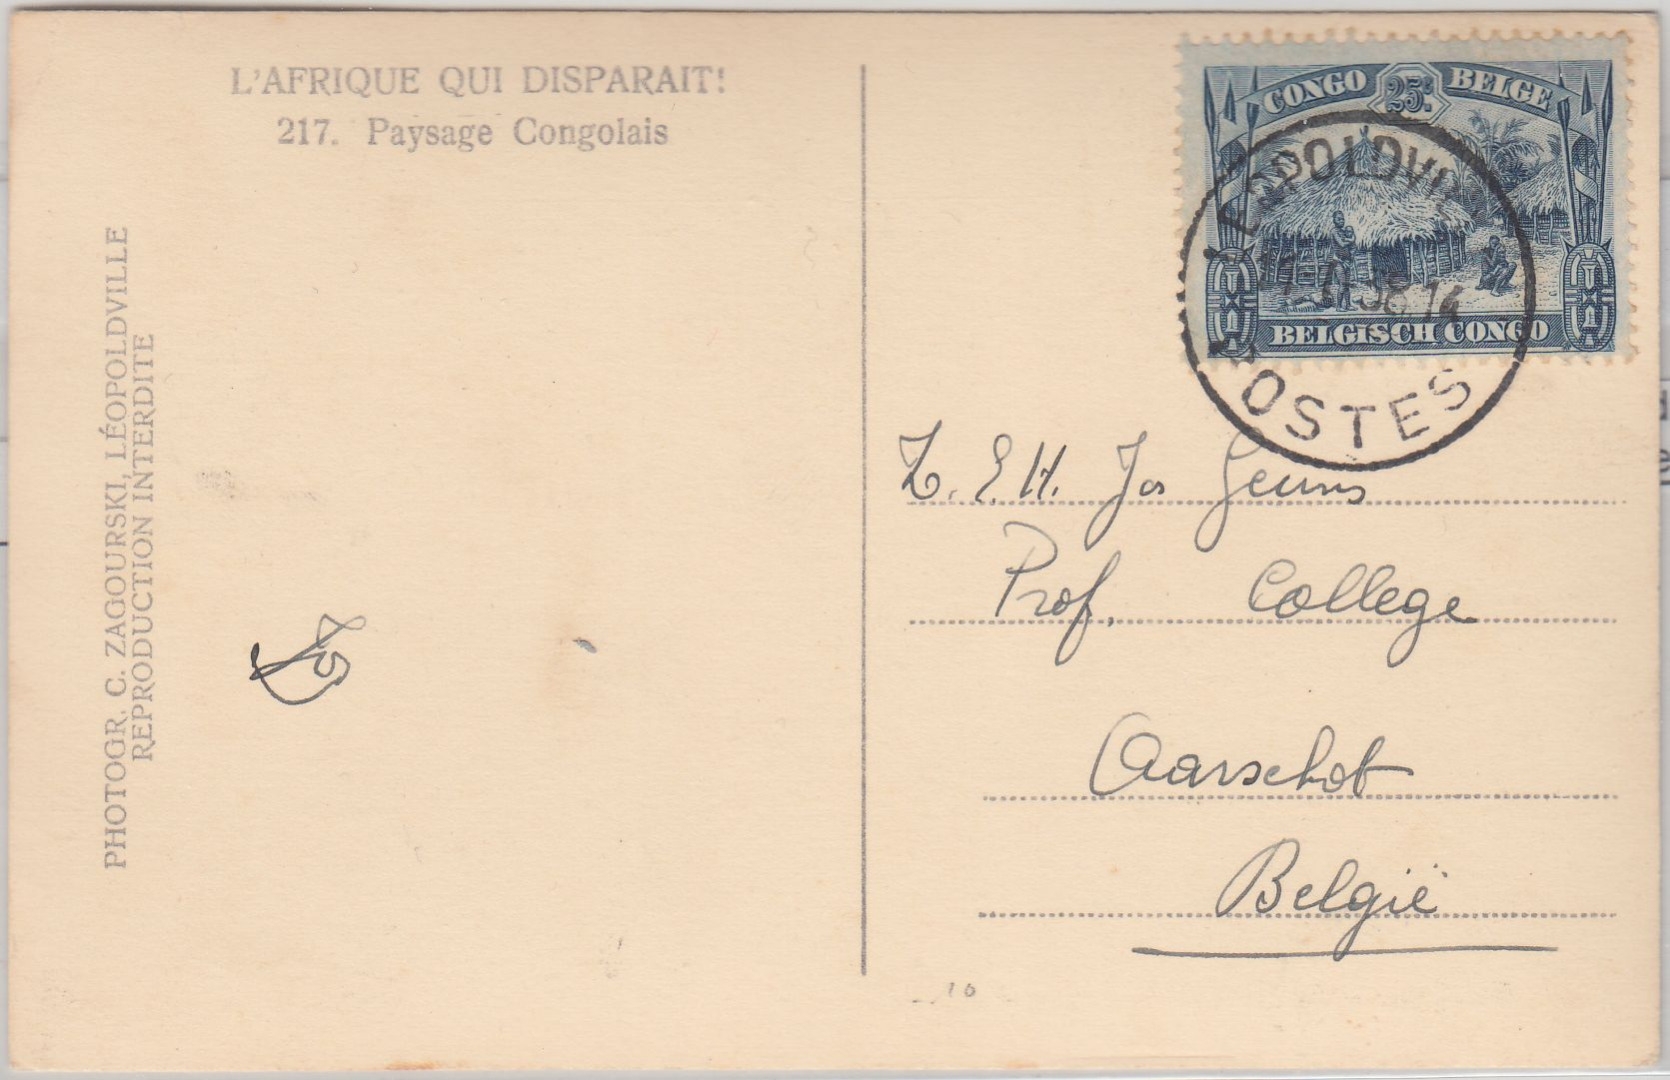 L'AFRIQUE QUI DISPARAIT!
217. Paysage Congolais
PHOTOGR. C. ZAGOURSKI, LÉOPOLDVILLE
REPRODUCTION INTERDITE
CONGO 25c BELGE
BELGISCH CONGO
LEOPOLDVILLE
38.14
POSTES
Z. E. H. Jos Geuns
Prof. College
Aarschot
België
10